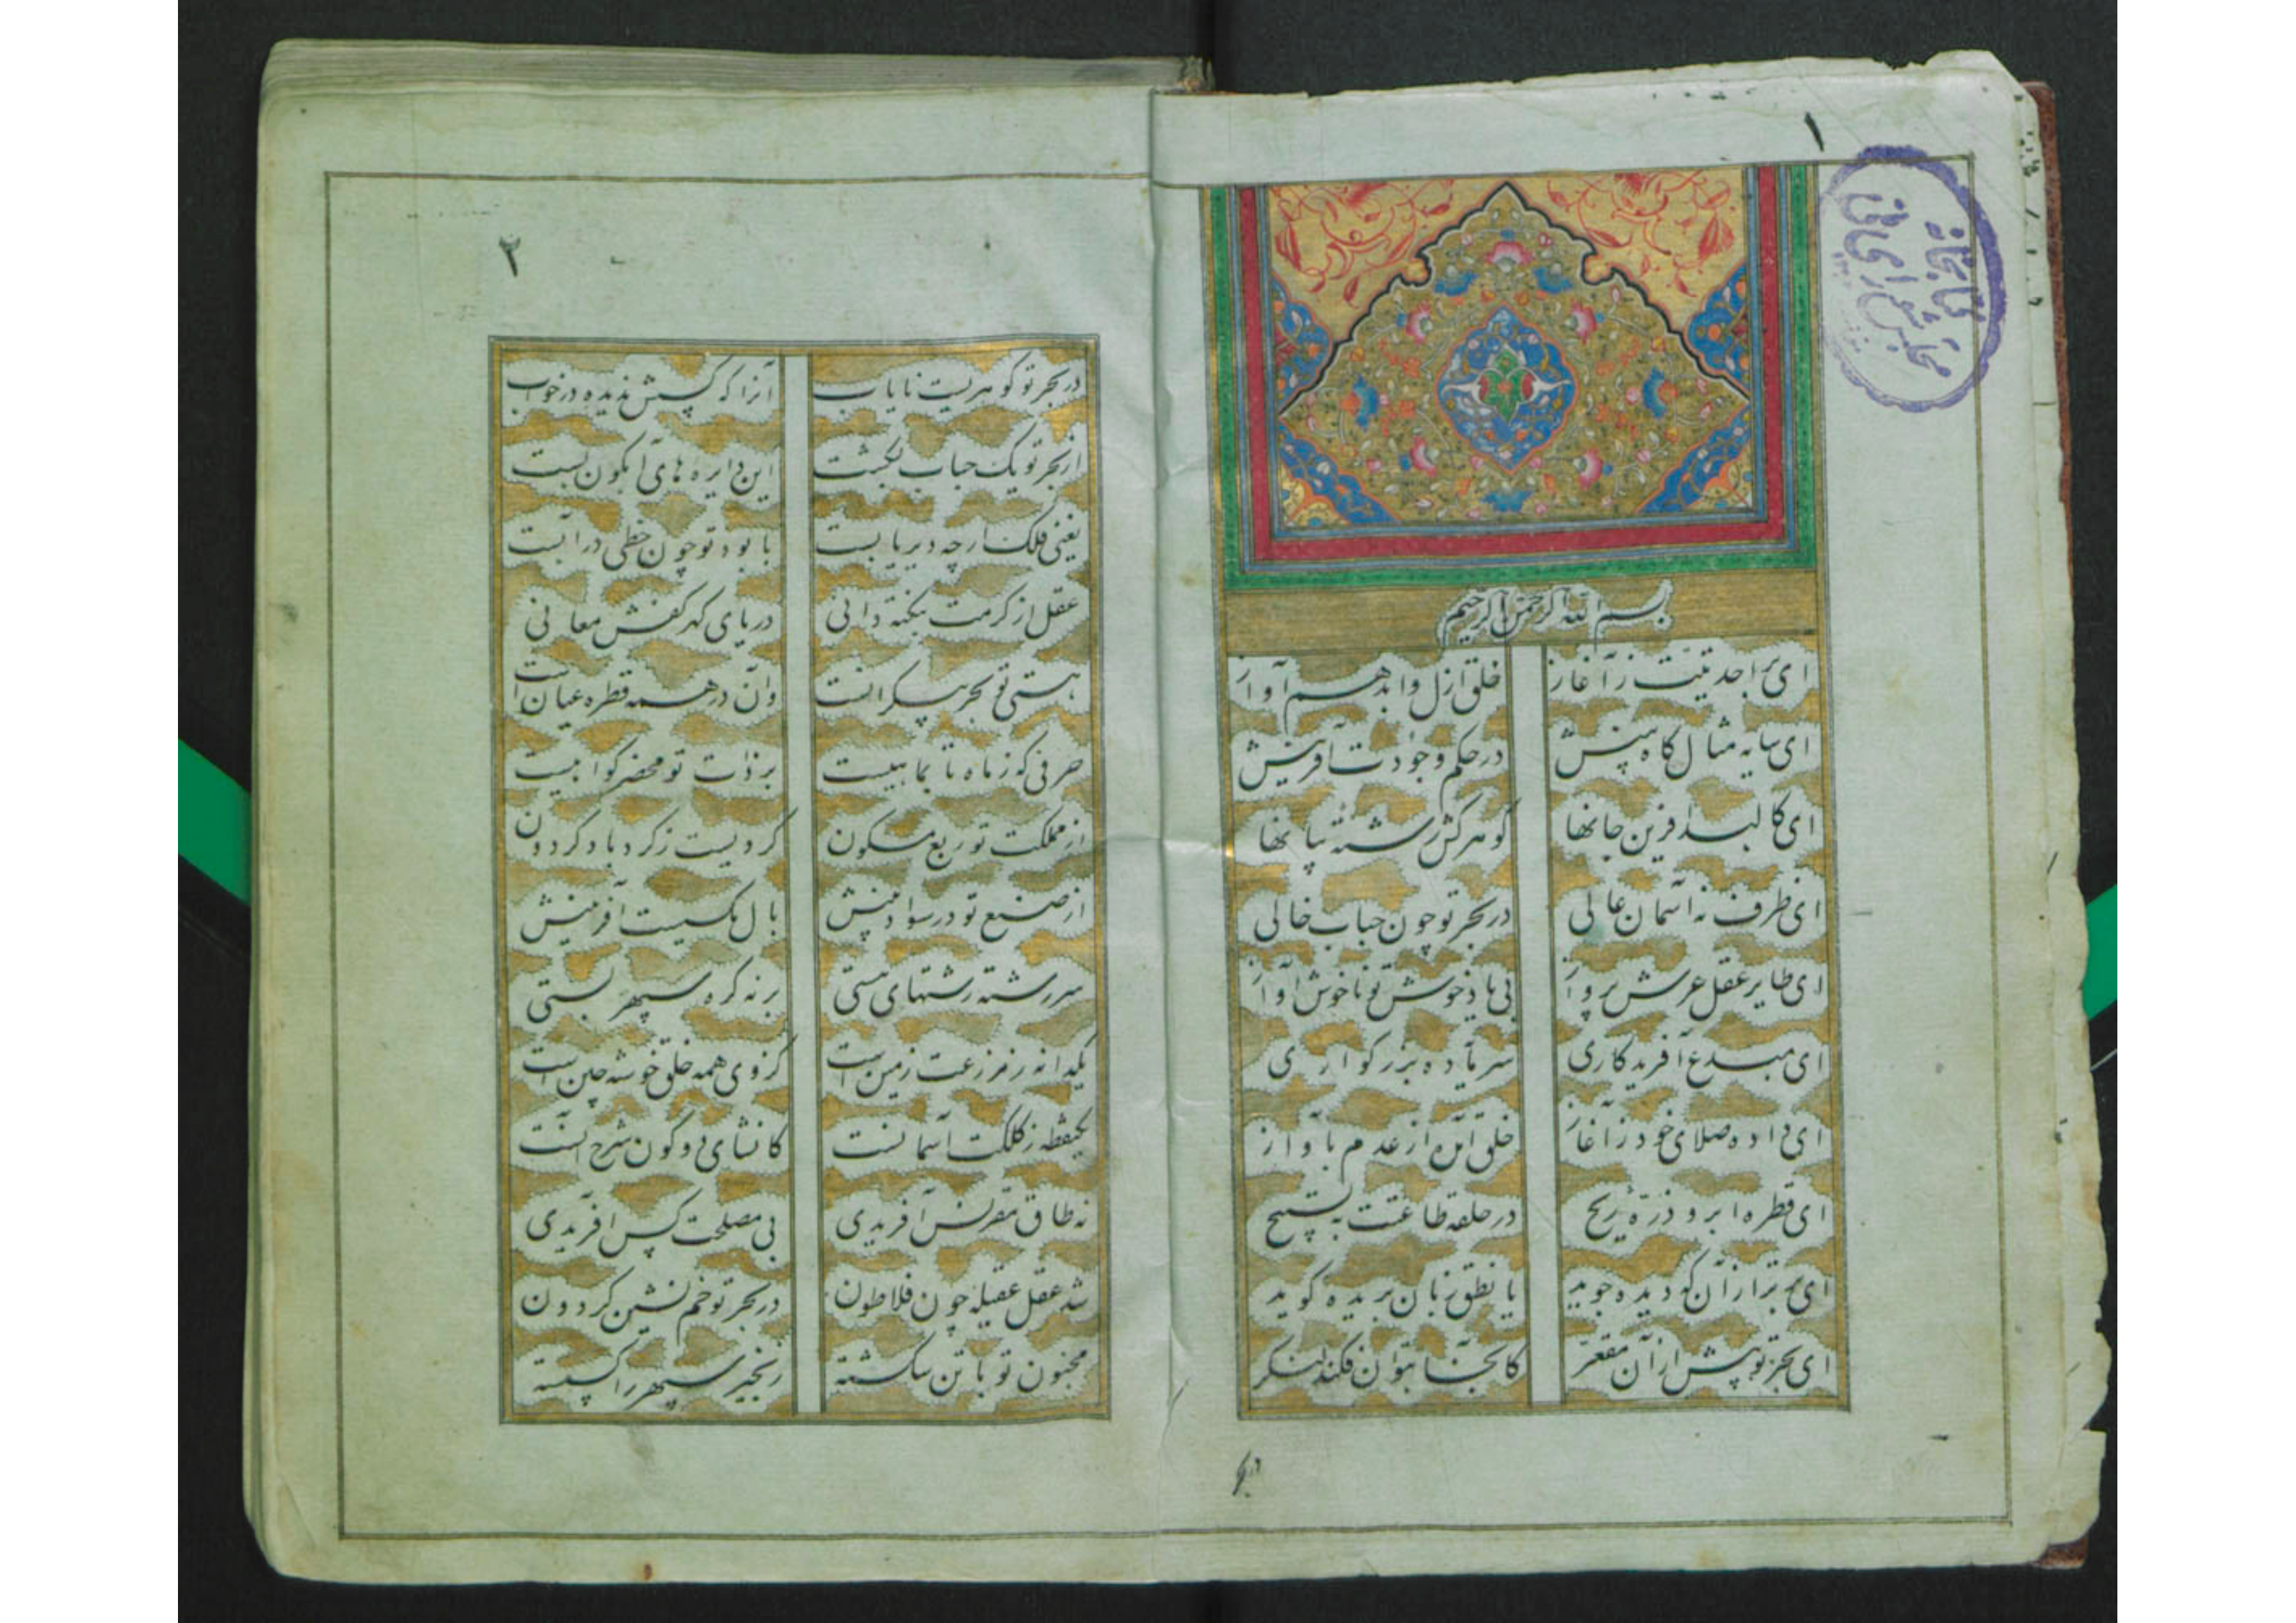 ۱
کتابخانه
مجلس شورای ملی
بسم الله الرحمن الرحیم
ای بر احدیتت ز آغاز خلق ازل و ابد هم آواز
ای سایه مثال گاه بینش در حکم وجودت آفرینش
ای کالبد آفرین جانها گوهر کش رشته بیانها
ای ظرف نه آسمان عالی در بحر تو چون حباب خالی
ای طایر عقل عرش پرواز بی یاد خوش تو ناخوش آواز
ای مبدع آفریدگاری سر بزرگواری
ای داده صلای خود ز آغاز خلق آمده از عدم بآواز
ای قطره ابر و ذره ریح در حلقه طاعتت به تسبیح
ای برتر از آن که دیده جوید یا نطق زبان بریده گوید
ای بحر تو پیش از آن مقعر کانجا بتوان فکند لنگر
در بحر
۲
در بحر تو گوهریست نایاب آنرا که کسش ندیده در خواب
از بحر تو یک حباب بگشت این دایره های آبگون بست
یعنی فلک ارچه دیر پایست با بود تو چون خطی در آبست
عقل از کرمت بنکته دانی دریای گهر کفش معانی
هستی تو بحر بیکرانست وان در همه قطره عیان است
حرفی که ز ماه تا بماهیست بر ذات تو محضر گواهیست
از مملکت تو ربع مسکون گردیست ز گرد باد گردون
از صنع تو در سواد بینش بال مگسیست آفرینش
سر رشته رشتهای هستی بر نه گره سپهر بستی
یکدانه ز مزرعت زمین است کز وی همه خلق خوشه چین است
یکنقطه ز کلکت آسمانست کانشای دو گون شرح آنست
نه طاق مقرنس آفریدی بی مصلحت کس آفریدی
شد عقل عقیله چون فلاطون در بحر تو خم نشین گردون
مجنون تو با تن شکسته زنجیر سپهر را گسسته